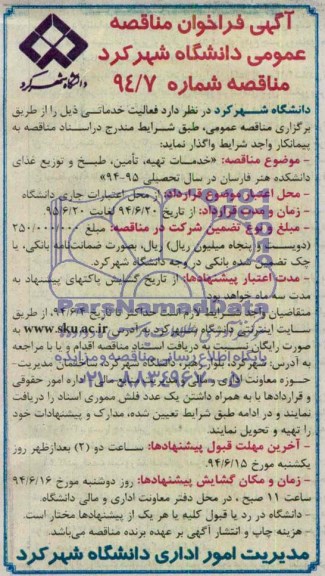 آگهی فراخوان مناقصه
عمومی دانشگاه شهرکرد
مناقصه شماره ۹۴/۷
دانشگاه شهرکرد
دانشگاه شهرکرد در نظر دارد فعالیت خدماتی ذیل را از طریق
برگزاری مناقصه عمومی، طبق شرایط مندرج در اسناد مناقصه به
پیمانکار واجد شرایط واگذار نماید:
- موضوع مناقصه: «خدمات تهیه، تأمین، طبخ و توزیع غذای
دانشکده هنر فارسان در سال تحصیلی ۹۵-۹۴»
- محل اعتبار موضوع قرارداد: از محل اعتبارات جاری دانشگاه
- زمان و مدت قرارداد: از تاریخ ۹۴/۶/۲۰ لغایت ۹۵/۶/۲۰
- مبلغ و نوع تضمین شرکت در مناقصه: مبلغ ۲۵۰/۰۰۰/۰۰۰
(دویست و پنجاه میلیون ریال) ریال، بصورت ضمانت‌نامه بانکی، یا
چک تضمین شده بانکی در وجه دانشگاه شهرکرد.
- مدت اعتبار پیشنهادها: از تاریخ گشایش پاکتهای پیشنهاد به
مدت سه ماه خواهد بود.
متقاضیان واجد شرایط لازم است حداکثر تا تاریخ ۹۴/۶/۴ از طریق
سایت اینترنتی دانشگاه شهرکرد به آدرس www.sku.ac.ir به
صورت رایگان نسبت به دریافت اسناد مناقصه اقدام و یا با مراجعه
به آدرس: شهرکرد، بلوار رهبر، دانشگاه شهرکرد، ساختمان مدیریت-
حوزه معاونت اداری و مالی اداره امور حقوقی
و قراردادها با به همراه داشتن یک عدد فلش مموری اسناد را دریافت
نمایند و در ادامه طبق شرایط تعیین شده، مدارک و پیشنهادات خود
را تهیه و تحویل نمایند.
- آخرین مهلت قبول پیشنهادها: ساعت دو (۲) بعدازظهر روز
یکشنبه مورخ ۹۴/۶/۱۵.
- زمان و مکان گشایش پیشنهادها: روز دوشنبه مورخ ۹۴/۶/۱۶
ساعت ۱۱ صبح، در محل دفتر معاونت اداری و مالی دانشگاه.
- دانشگاه در رد یا قبول کلیه یا هر یک از پیشنهادها مختار است.
- هزینه چاپ و انتشار آگهی بر عهده برنده مناقصه می‌باشد.
مدیریت امور اداری دانشگاه شهرکرد
ParsNamadData
پایگاه اطلاع رسانی مناقصه و مزایده
۰۲۱-۸۸۳۴۹۶۷۰-۵